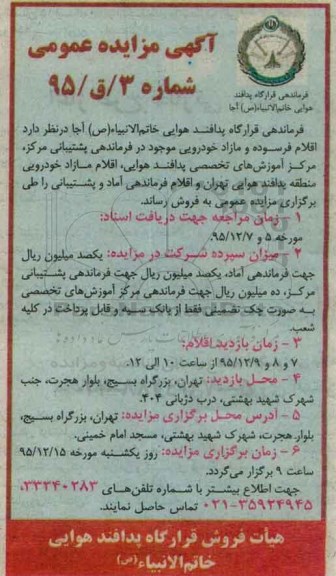 آگهی مزایده عمومی
شماره ۳/ق/۹۵
فرماندهی قرارگاه پدافند
هوایی خاتم‌الانبیاء(ص) آجا
فرماندهی قرارگاه پدافند هوایی خاتم‌الانبیاء(ص) آجا درنظر دارد
اقلام فرسوده و مازاد خودرویی موجود در فرماندهی پشتیبانی مرکز،
مرکز آموزش‌های تخصصی پدافند هوایی، اقلام مازاد خودرویی
منطقه پدافند هوایی تهران و اقلام فرماندهی آماد و پشتیبانی را طی
برگزاری مزایده عمومی به فروش رساند.
۱ - زمان مراجعه جهت دریافت اسناد:
مورخه ۵ و ۹۵/۱۲/۷.
۲ - میزان سپرده شرکت در مزایده: یکصد میلیون ریال
جهت فرماندهی آماد، یکصد میلیون ریال جهت فرماندهی پشتیبانی
مرکز، ده میلیون ریال جهت فرماندهی مرکز آموزش‌های تخصصی
به صورت چک تضمینی فقط از بانک سپه و قابل پرداخت در کلیه
شعب.
۳ - زمان بازدید اقلام:
۷ و ۸ و ۹۵/۱۲/۹ از ساعت ۱۰ الی ۱۲.
۴ - محل بازدید: تهران، بزرگراه بسیج، بلوار هجرت، جنب
شهرک شهید بهشتی، درب دژبانی ۴۰۴.
۵ - آدرس محل برگزاری مزایده: تهران، بزرگراه بسیج،
بلوار هجرت، شهرک شهید بهشتی، مسجد امام خمینی.
۶ - زمان برگزاری مزایده: روز یکشنبه مورخه ۹۵/۱۲/۱۵
ساعت ۹ برگزار می‌گردد.
جهت اطلاع بیشتر با شماره تلفن‌های ۳۳۲۴۰۲۸۳،
۰۲۱-۳۵۹۲۴۹۴۵ تماس حاصل نمایند.
هیأت فروش قرارگاه پدافند هوایی
خاتم‌الانبیاء(ص)